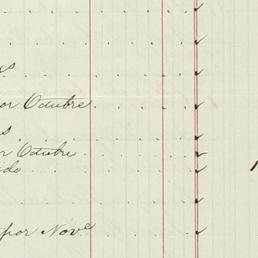 or Octubre
s
r Octubre
ido
por Nov^e